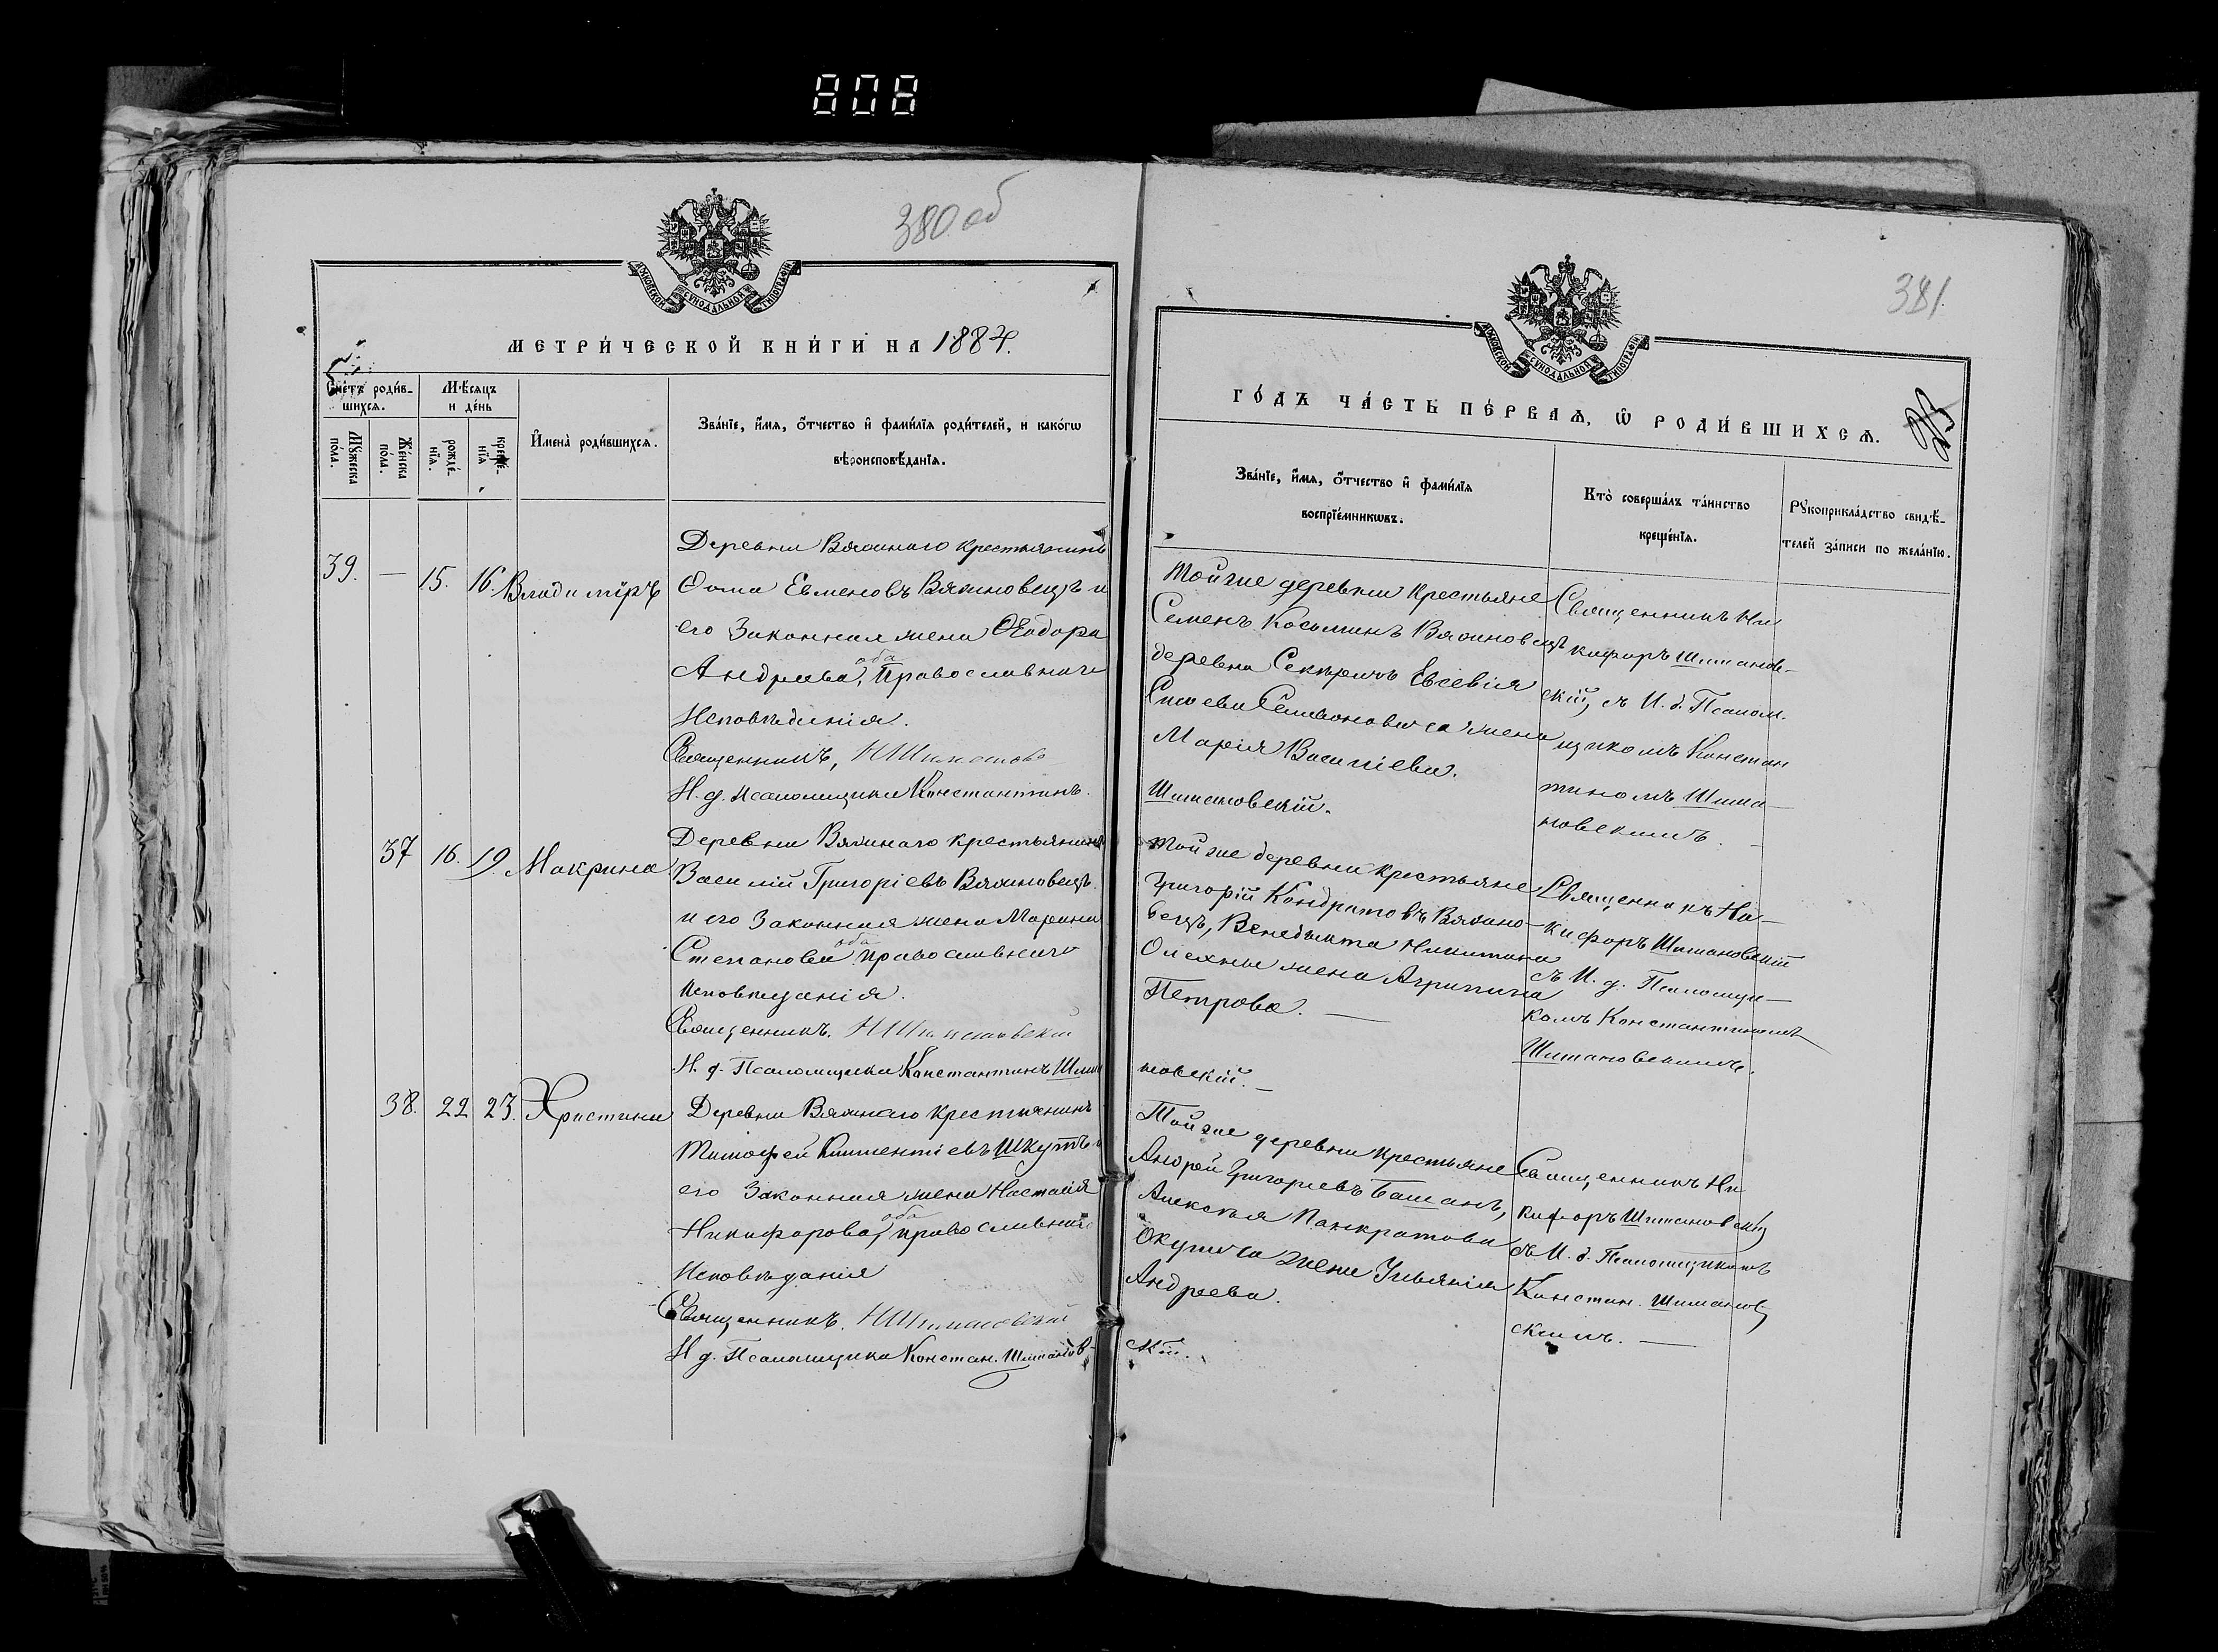 808
380 об
МОСКОВСКОЙ СѴНОДАЛЬНОЙ ТИПОГРАФІИ
МЕТРИ́ЧЕСКОЙ КНИ́ГИ НА 1884.
Сче́тъ роди́в-
шихсѧ.
Мꙋ́жеска по́ла.
Же́нска по́ла.
Мѣ́сяцъ
и де́нь
рожде́нїѧ.
креще́-нїѧ
И҆мена̀ роди́вшихсѧ.
Зва́нїе, и҆́мѧ, ѻ҆́тчество и҆ фами́лїѧ роди́телей, и како́гѡ
вѣроисповѣ́данїѧ.
39. — 15. 16. Владиміръ
Деревни Вяжинаго крестьянинъ
Ѳома Евменовъ Вяжиновецъ и
его Законная жена Ѳеодора
Андреева, оба Православнаго
Исповѣданія.
Священникъ, Н Шимановс
И. д. псаломщика Константинъ
37 16. 19. Макрина
Деревни Вяжинаго крестьянинъ
Василій Григоріевъ Вяжиновецъ
и его Законная жена Марина
Степанова оба православнаго
исповѣданія.
Священникъ. Н Шимановскій
И. д. Псаломщика Константинъ Шима
38. 22 23. Христина
Деревни Вяжинаго крестьянинъ
Тимофей Климентіевъ Шкутъ и
его Законная жена Настасія
Никифорова, оба православнаго
Исповѣданія
Священникъ. Н Шимановскій
И д. Псаломщика Констан. Шиманов-
381.
МОСКОВСКОЙ СѴНОДАЛЬНОЙ ТИПОГРАФІИ
ГО́ДЪ ЧА́СТЬ ПЕ́РВАѦ, Ѽ РОДИ́ВШИХСѦ.
Зва́нїе, и҆́мѧ, ѻ҆́тчество и҆ фами́лїѧ
воспрїе́мникѡвъ.
Кто̀ соверша́лъ та́инство
креще́нїѧ.
Рꙋкоприкла́дство свидѣ́-
телей за́писи по жела́нїю.
Той же деревни крестьяне
Семенъ Косьминъ Вяжиновецъ
деревни Евсевія
жена
Марія Василіева.
Шимановскій.
Священникъ Ни
кифоръ Шиманов-
скій, съ И. д. Псалом.
щикомъ Констан
тиномъ Шима-
новскимъ.
Той же деревни крестьяне
Григорій Кондратовъ Вяжино-
вецъ, Венедикта Никитина
жена Агрипина
Петрова. —
новскій. —
Священникъ Ни-
кифоръ Шимановскій
съ И. д. Псаломщи-
комъ Константиномъ
Шимановскимъ.
Той же деревни крестьяне
Андрей Григорьевъ Башанъ,
Алексѣя Панкратова
жена Ульянія
Андреева.
скій.
Священникъ Ни
кифоръ Шимановскій
съ И. д. Псаломщикомъ
Констан. Шиманов
скимъ. —